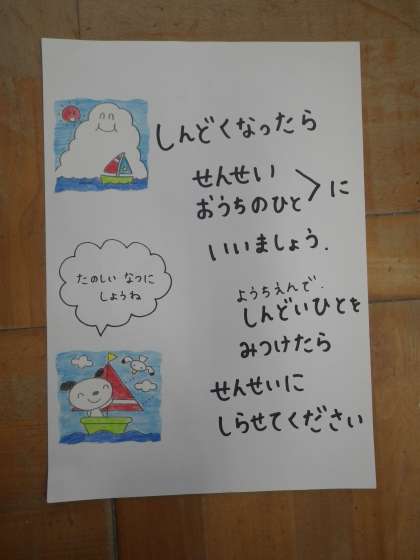 しんどくなったら
せんせい
おうちのひと＞に
いいましょう.
たのしい なつに
しようね
ようちえんで.
しんどいひとを
みつけたら
せんせいに
しらせてください